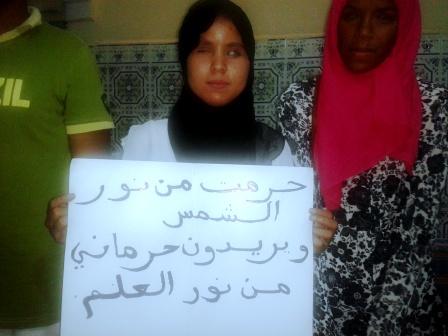 حرمت من نور
الشمس
ويريدون حرماني
من نور العلم.
ZIL